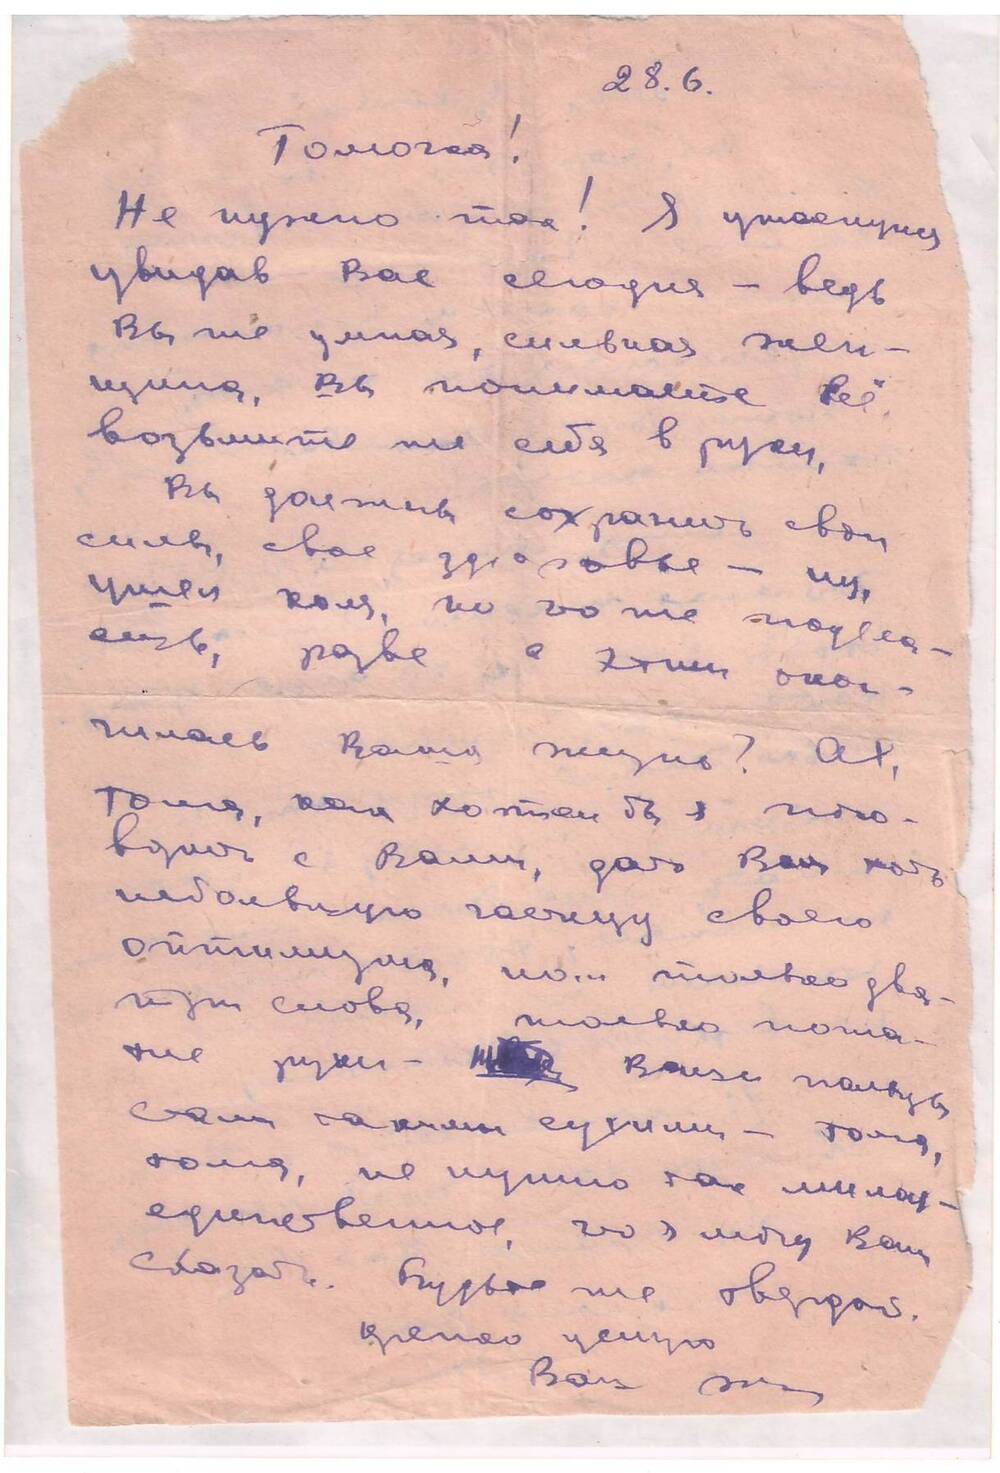 28.6.
Томочка!
Не нужно так! Я ужаснулся
увидав Вас сегодня – ведь
Вы же умная, сильная жен-
щина, Вы понимаете всё.
возьмите же себя в руки,
Вы должны сохранить свои
силы, свое здоровье – ну,
ушел Коля, но то же
разве с этим окон-
чилась Ваша жизнь? Ах,
Тома, как хотел бы я пого-
ворить с Вами, дать Вам хоть
небольшую частицу своего
оптимизма, но только два-
три слова, только пожа-
тие руки – Ваши пальцы
стали такими сухими – Тома,
Тома, не нужно так милая –
единственное, что я могу Вам
сказать. Будьте же твердой.
крепко целую
Ваш